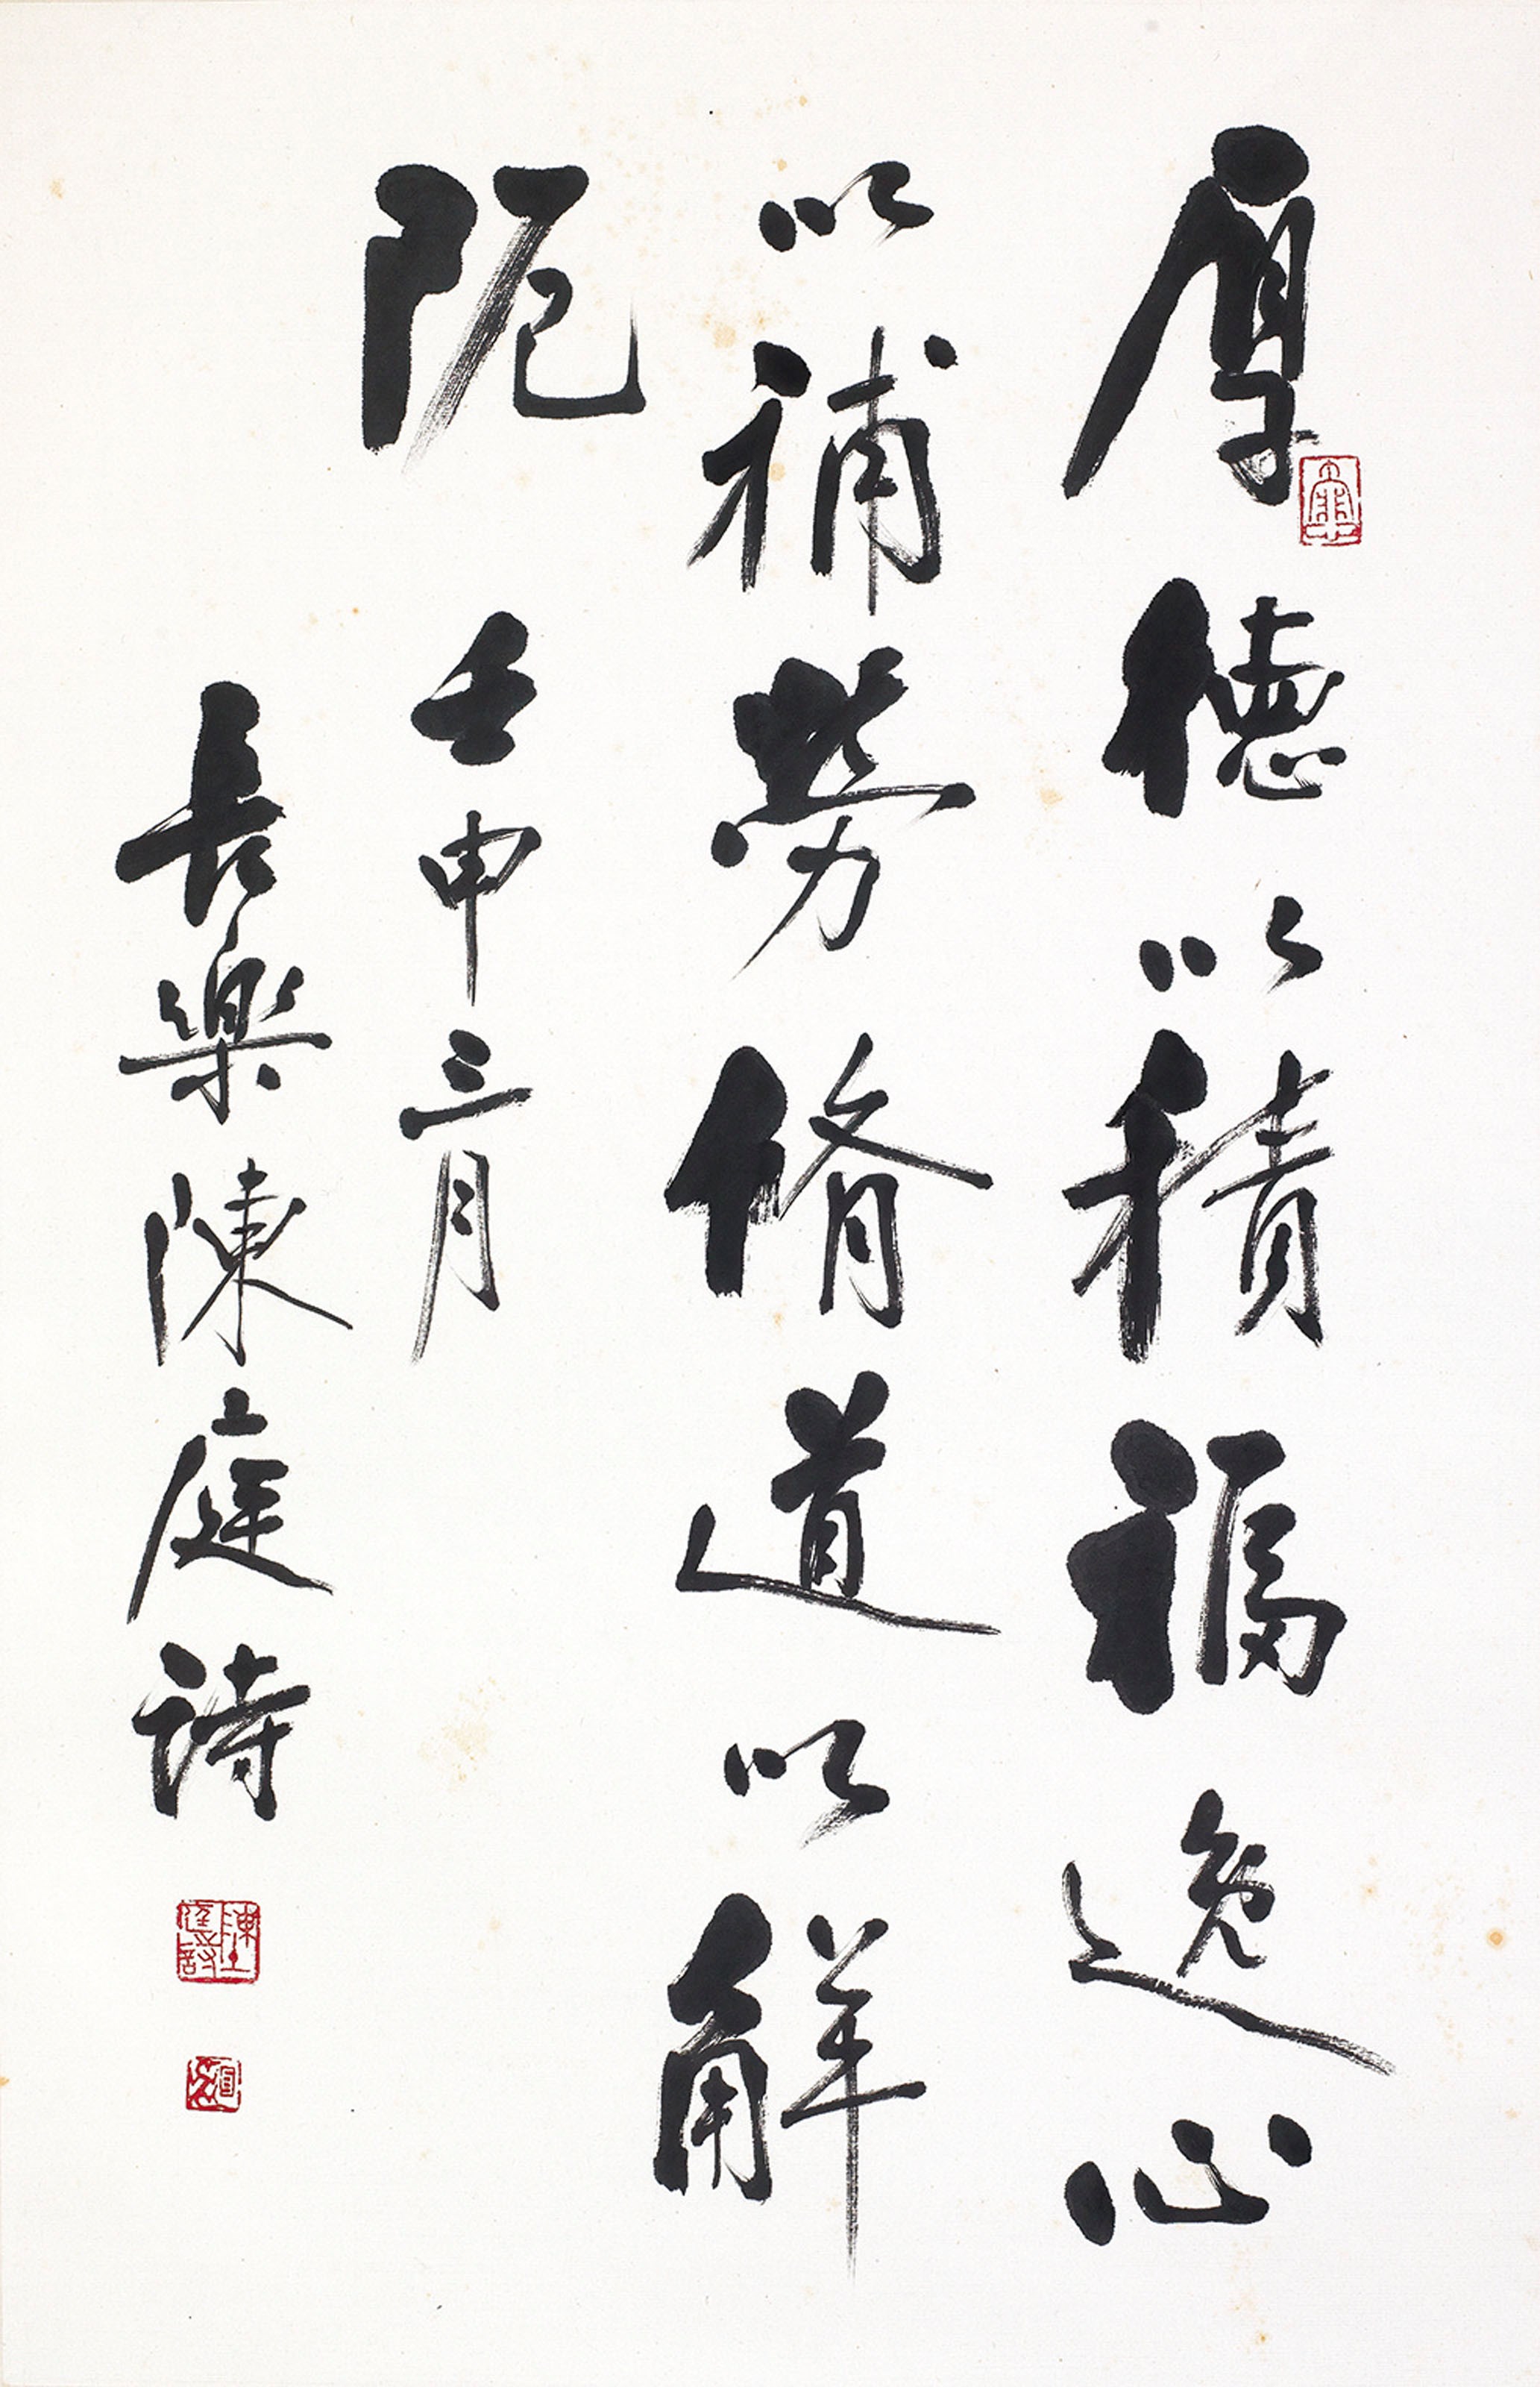 厚德以積福逸心
以補勞脩道以解
阨 壬申三月
長樂陳庭詩
陳庭詩